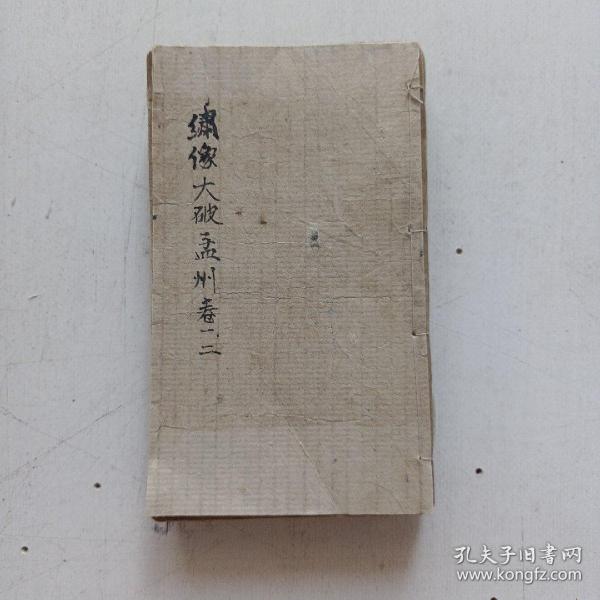 繡像大破孟州卷一、二
孔夫子旧书网
www.kongfz.com